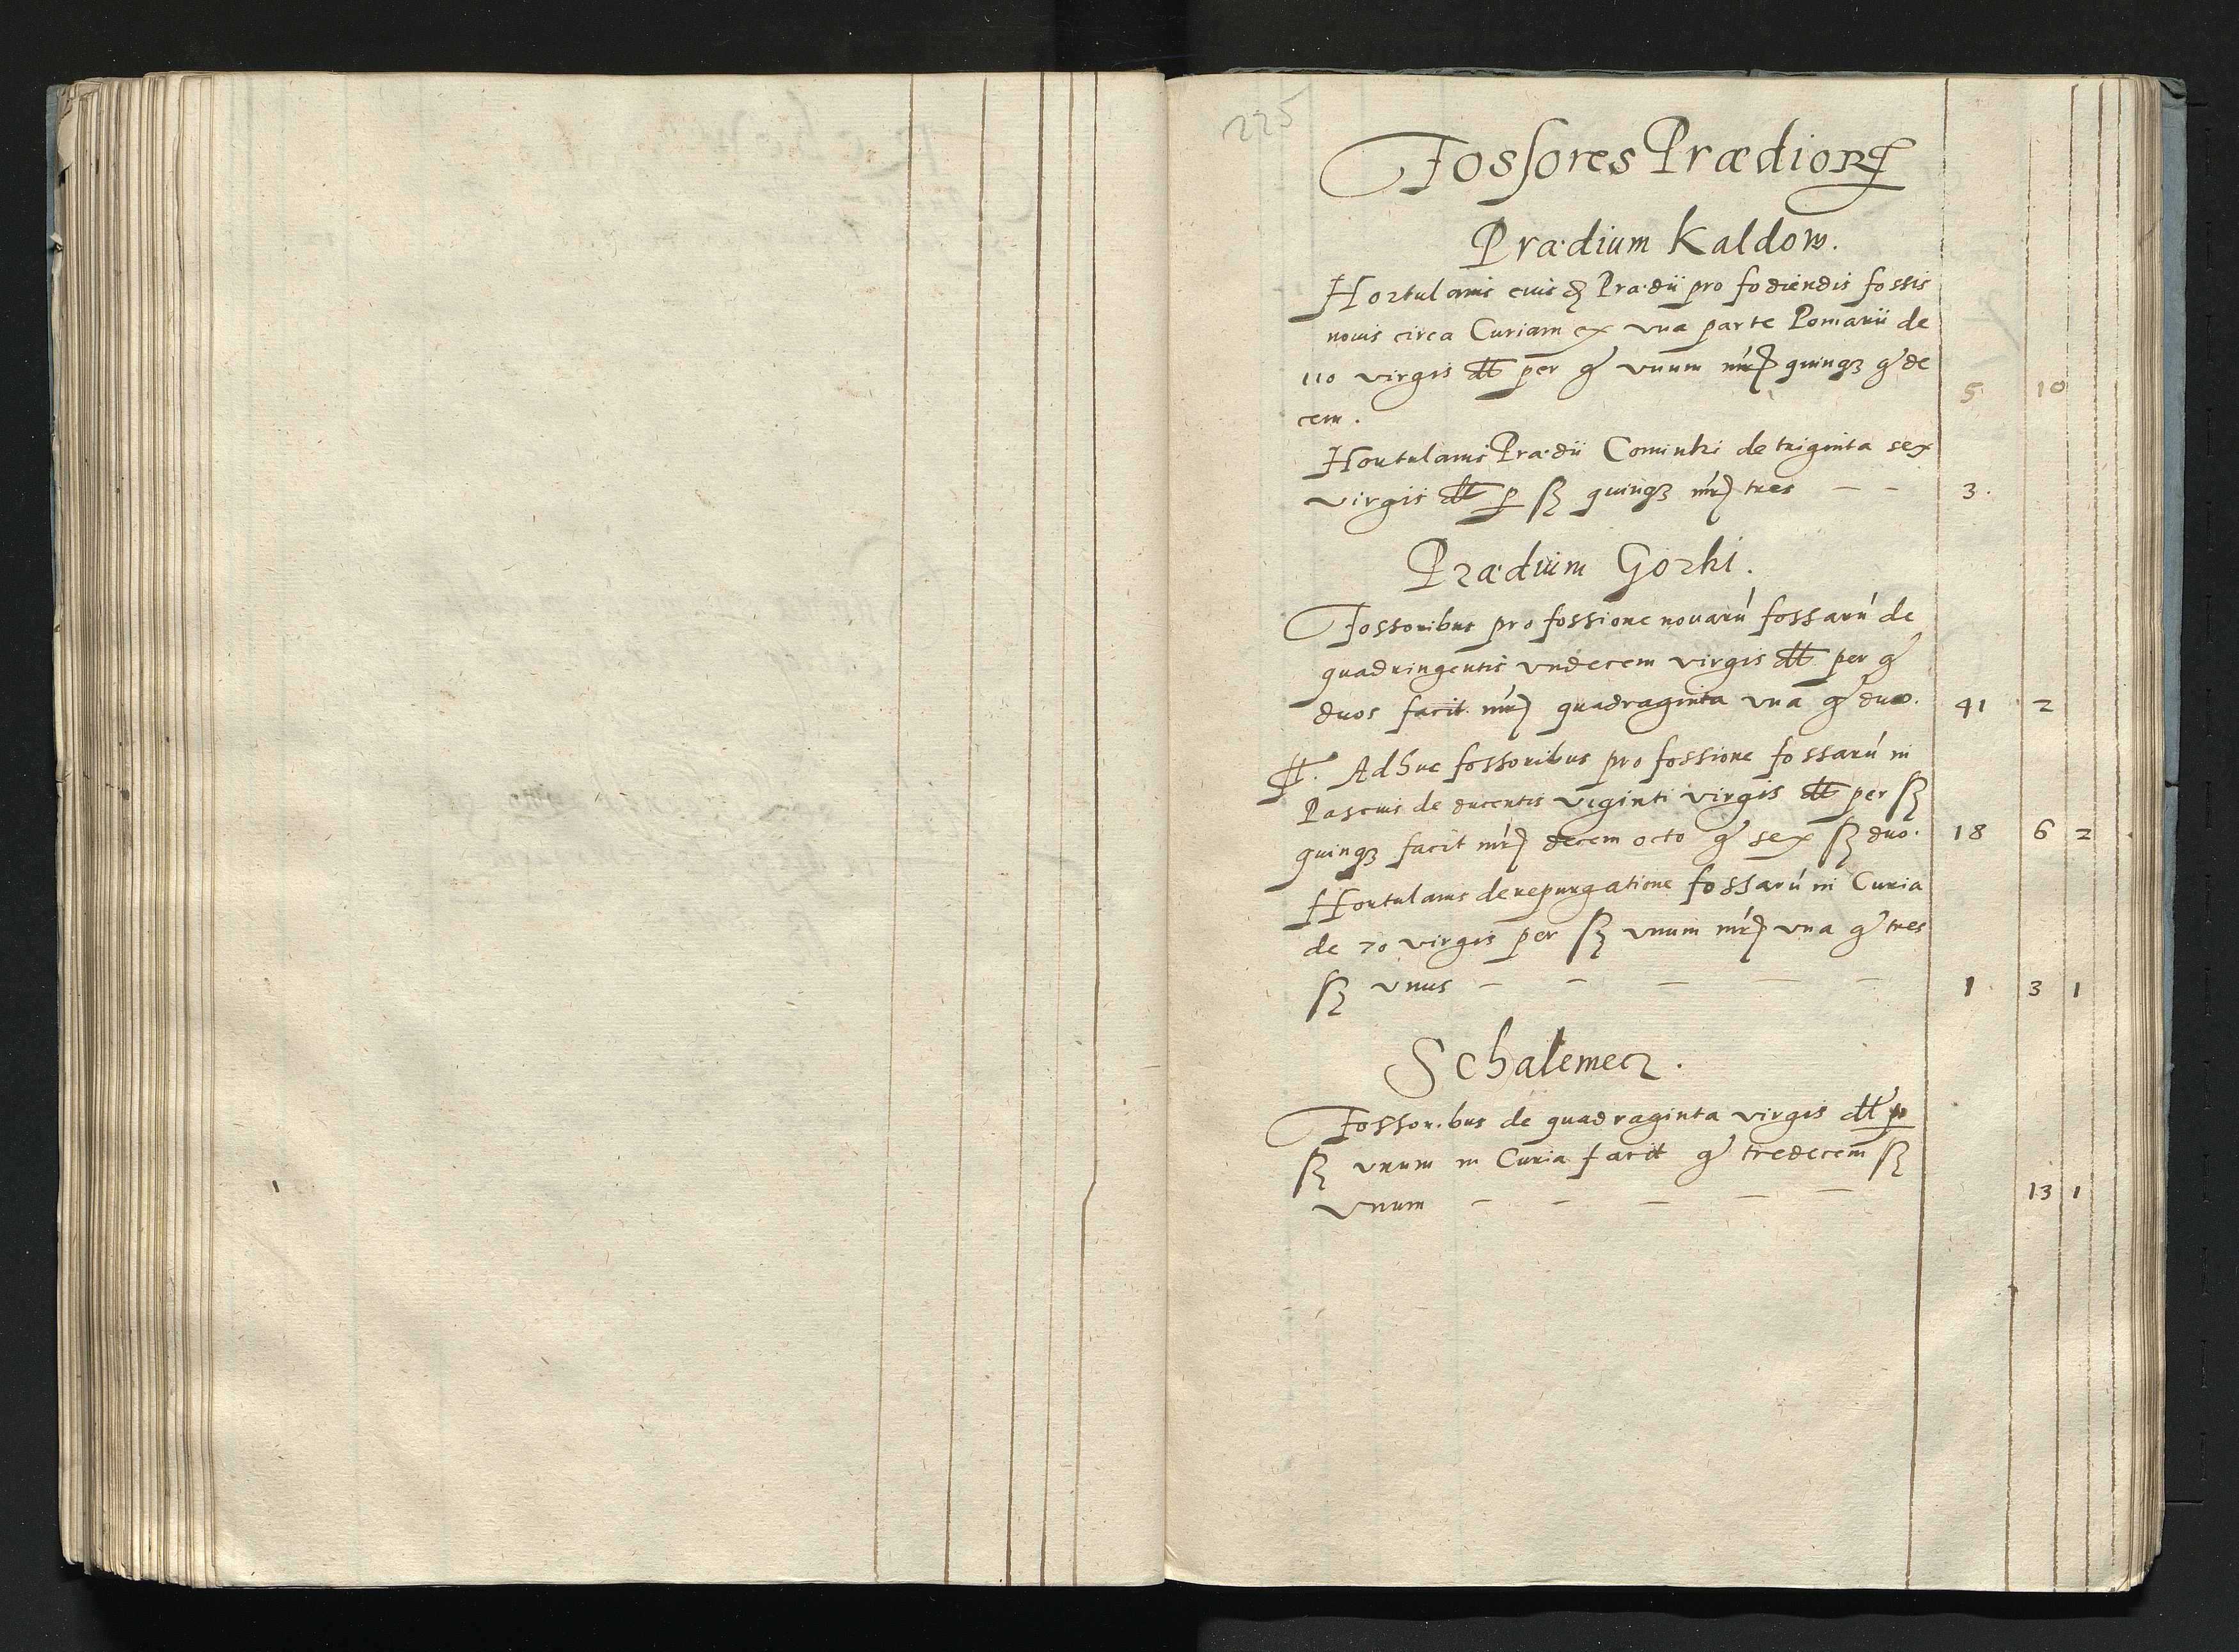 225
Fossores Prædioꝝ
Prædium Kaldow.
Hortulanis eiusđ Prædii pro fodiendis fossis
nouis circa Curiam ex vna parte Pomarii de
110 virgis dt per gͬ vnum mr̃ quinqꝫ gͬ de
cem. 5 10
Hortulanis Prædii Cominki de triginta sex
virgis dt ꝑ ẞ quinqꝫ mr̃ tres – – 3.
Prædium Gorki.
Fossoribus pro fossione nouarú fossarú de
quadringentis vndecem virgis dt per gͬ
duos facit mr̃ quadraginta vna gͬ duo. 41 2
It. Adhuc fossoribus pro fossione fossarú in
Pascuis de ducentis viginti virgis dt per ẞ
quinqꝫ facit mr̃ decem octo gͬ sex ẞ duo. 18 6 2
Hortulanis de repurgatione fossarú in Curia
de 70 virgis per ẞ vnum mr̃ vna gͬ tres
ẞ vnus – – – – – 1 3 1
Schalemecz.
Fossoribus de quadraginta virgis dt ꝑ
ẞ vnum in Curia facit gͬ tredecem ẞ
vnum – – – – – 13 1